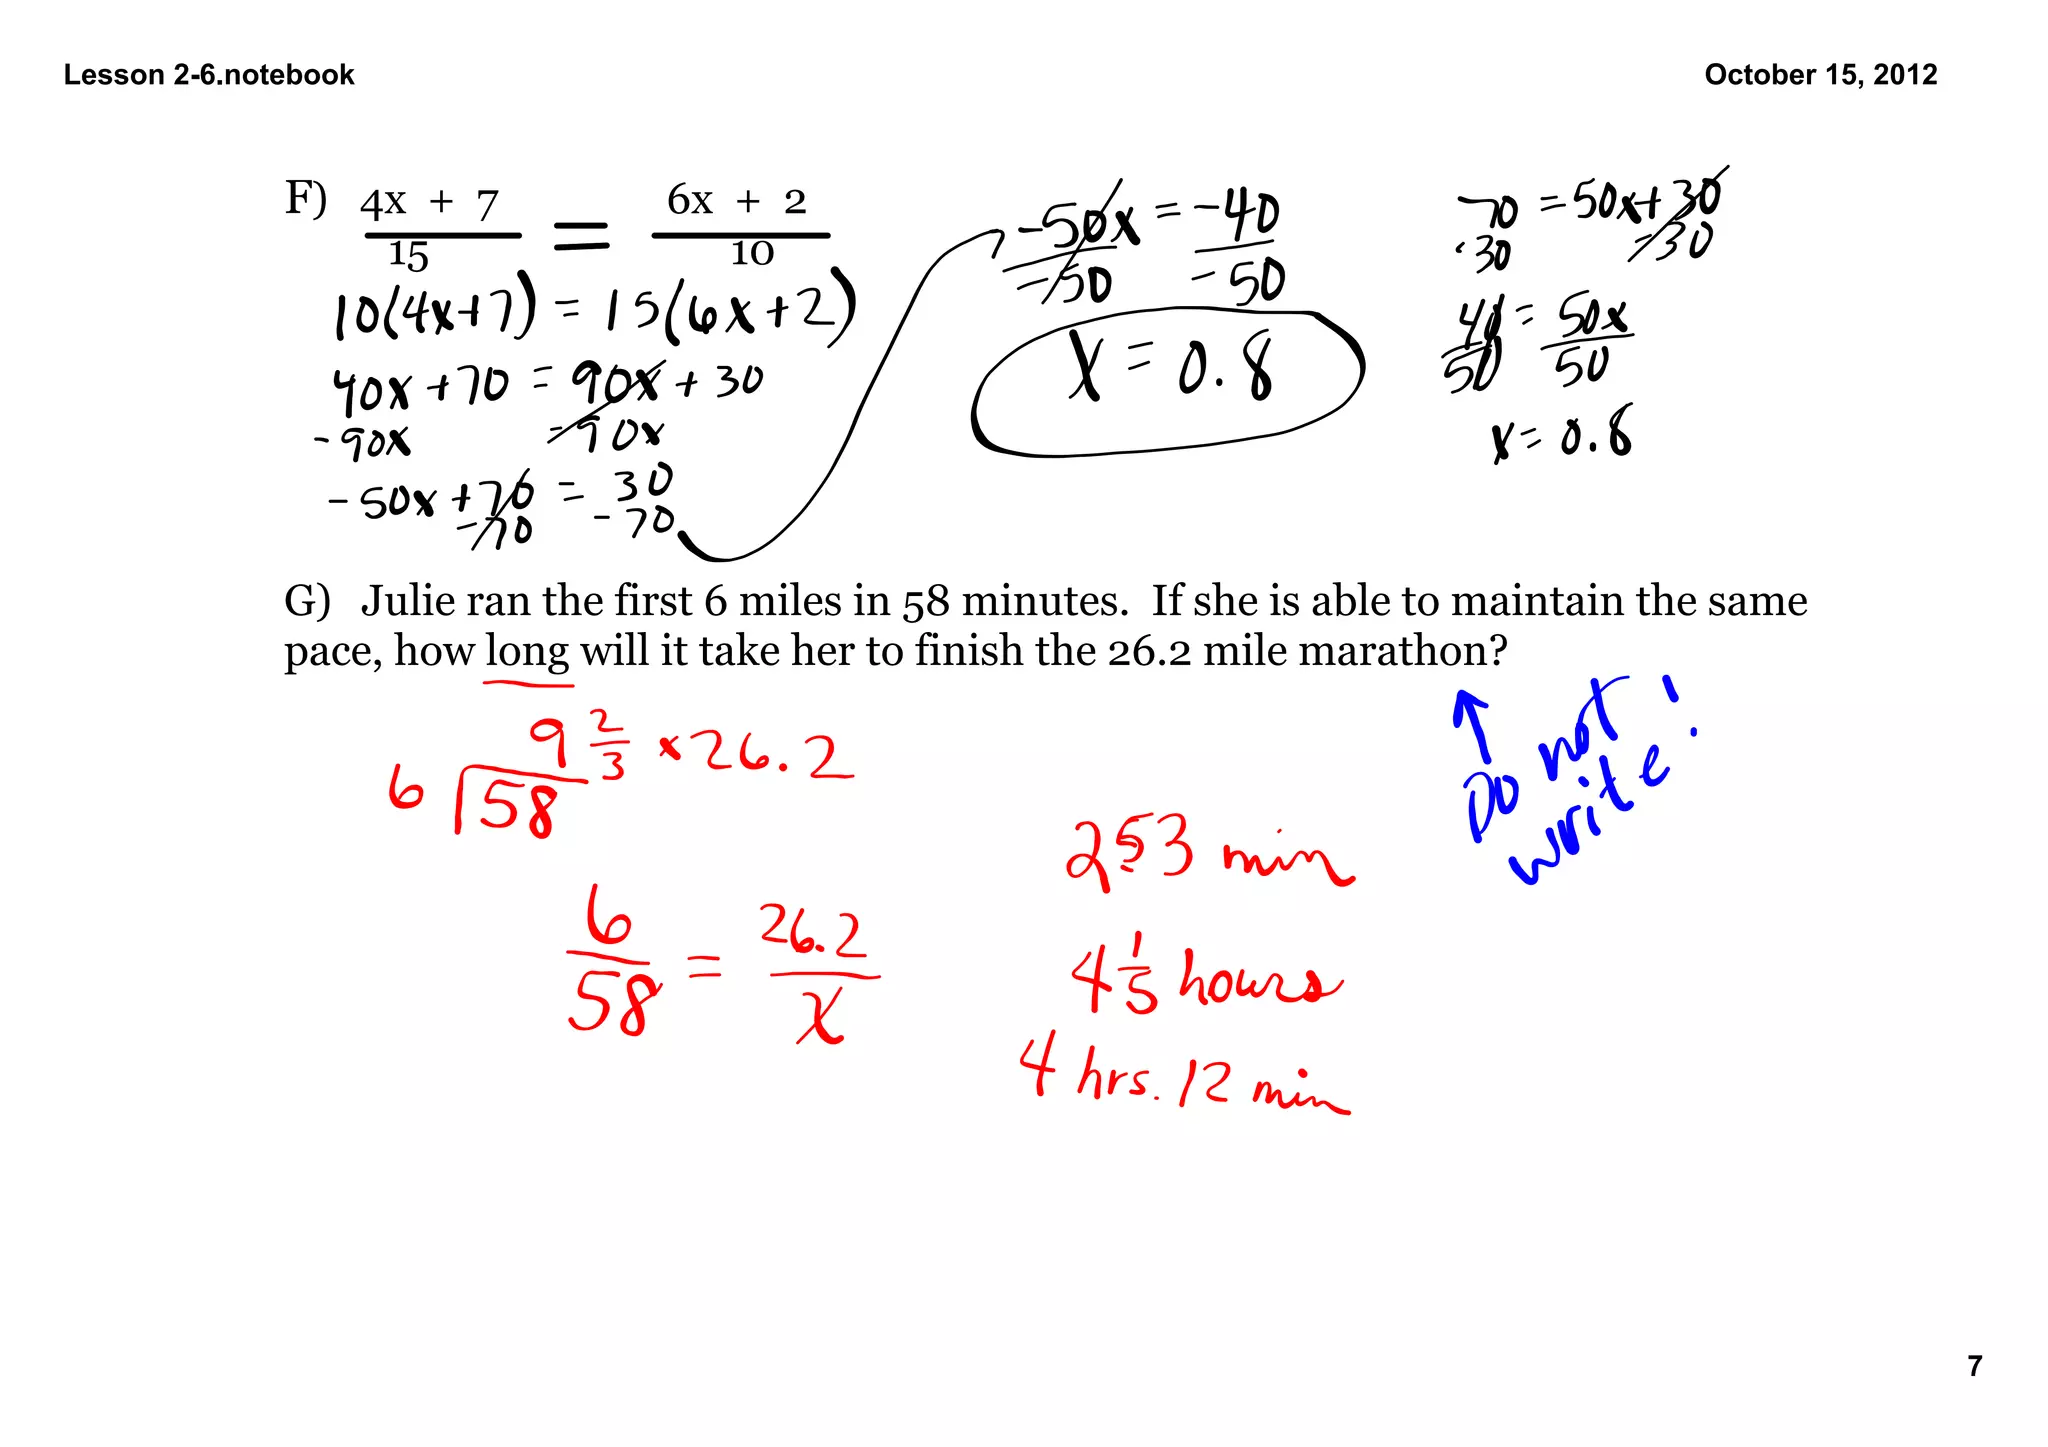 Lesson 2-6.notebook
October 15, 2012
F) 4x + 7 = 6x + 2
15 10
10(4x+7) = 15(6x+2)
40x +70 = 90x + 30
-90x -90x
-50x +70 = 30
-70 -70
-50x = -40
-50 -50
x = 0.8
70 = 50x+30
-30 -30
40 = 50x
50 50
x = 0.8
G) Julie ran the first 6 miles in 58 minutes. If she is able to maintain the same
pace, how long will it take her to finish the 26.2 mile marathon?
9 2/3 × 26.2
6 58
6 = 26.2
58 x
253 min
4 1/5 hours
4 hrs. 12 min
Do not
write!
7